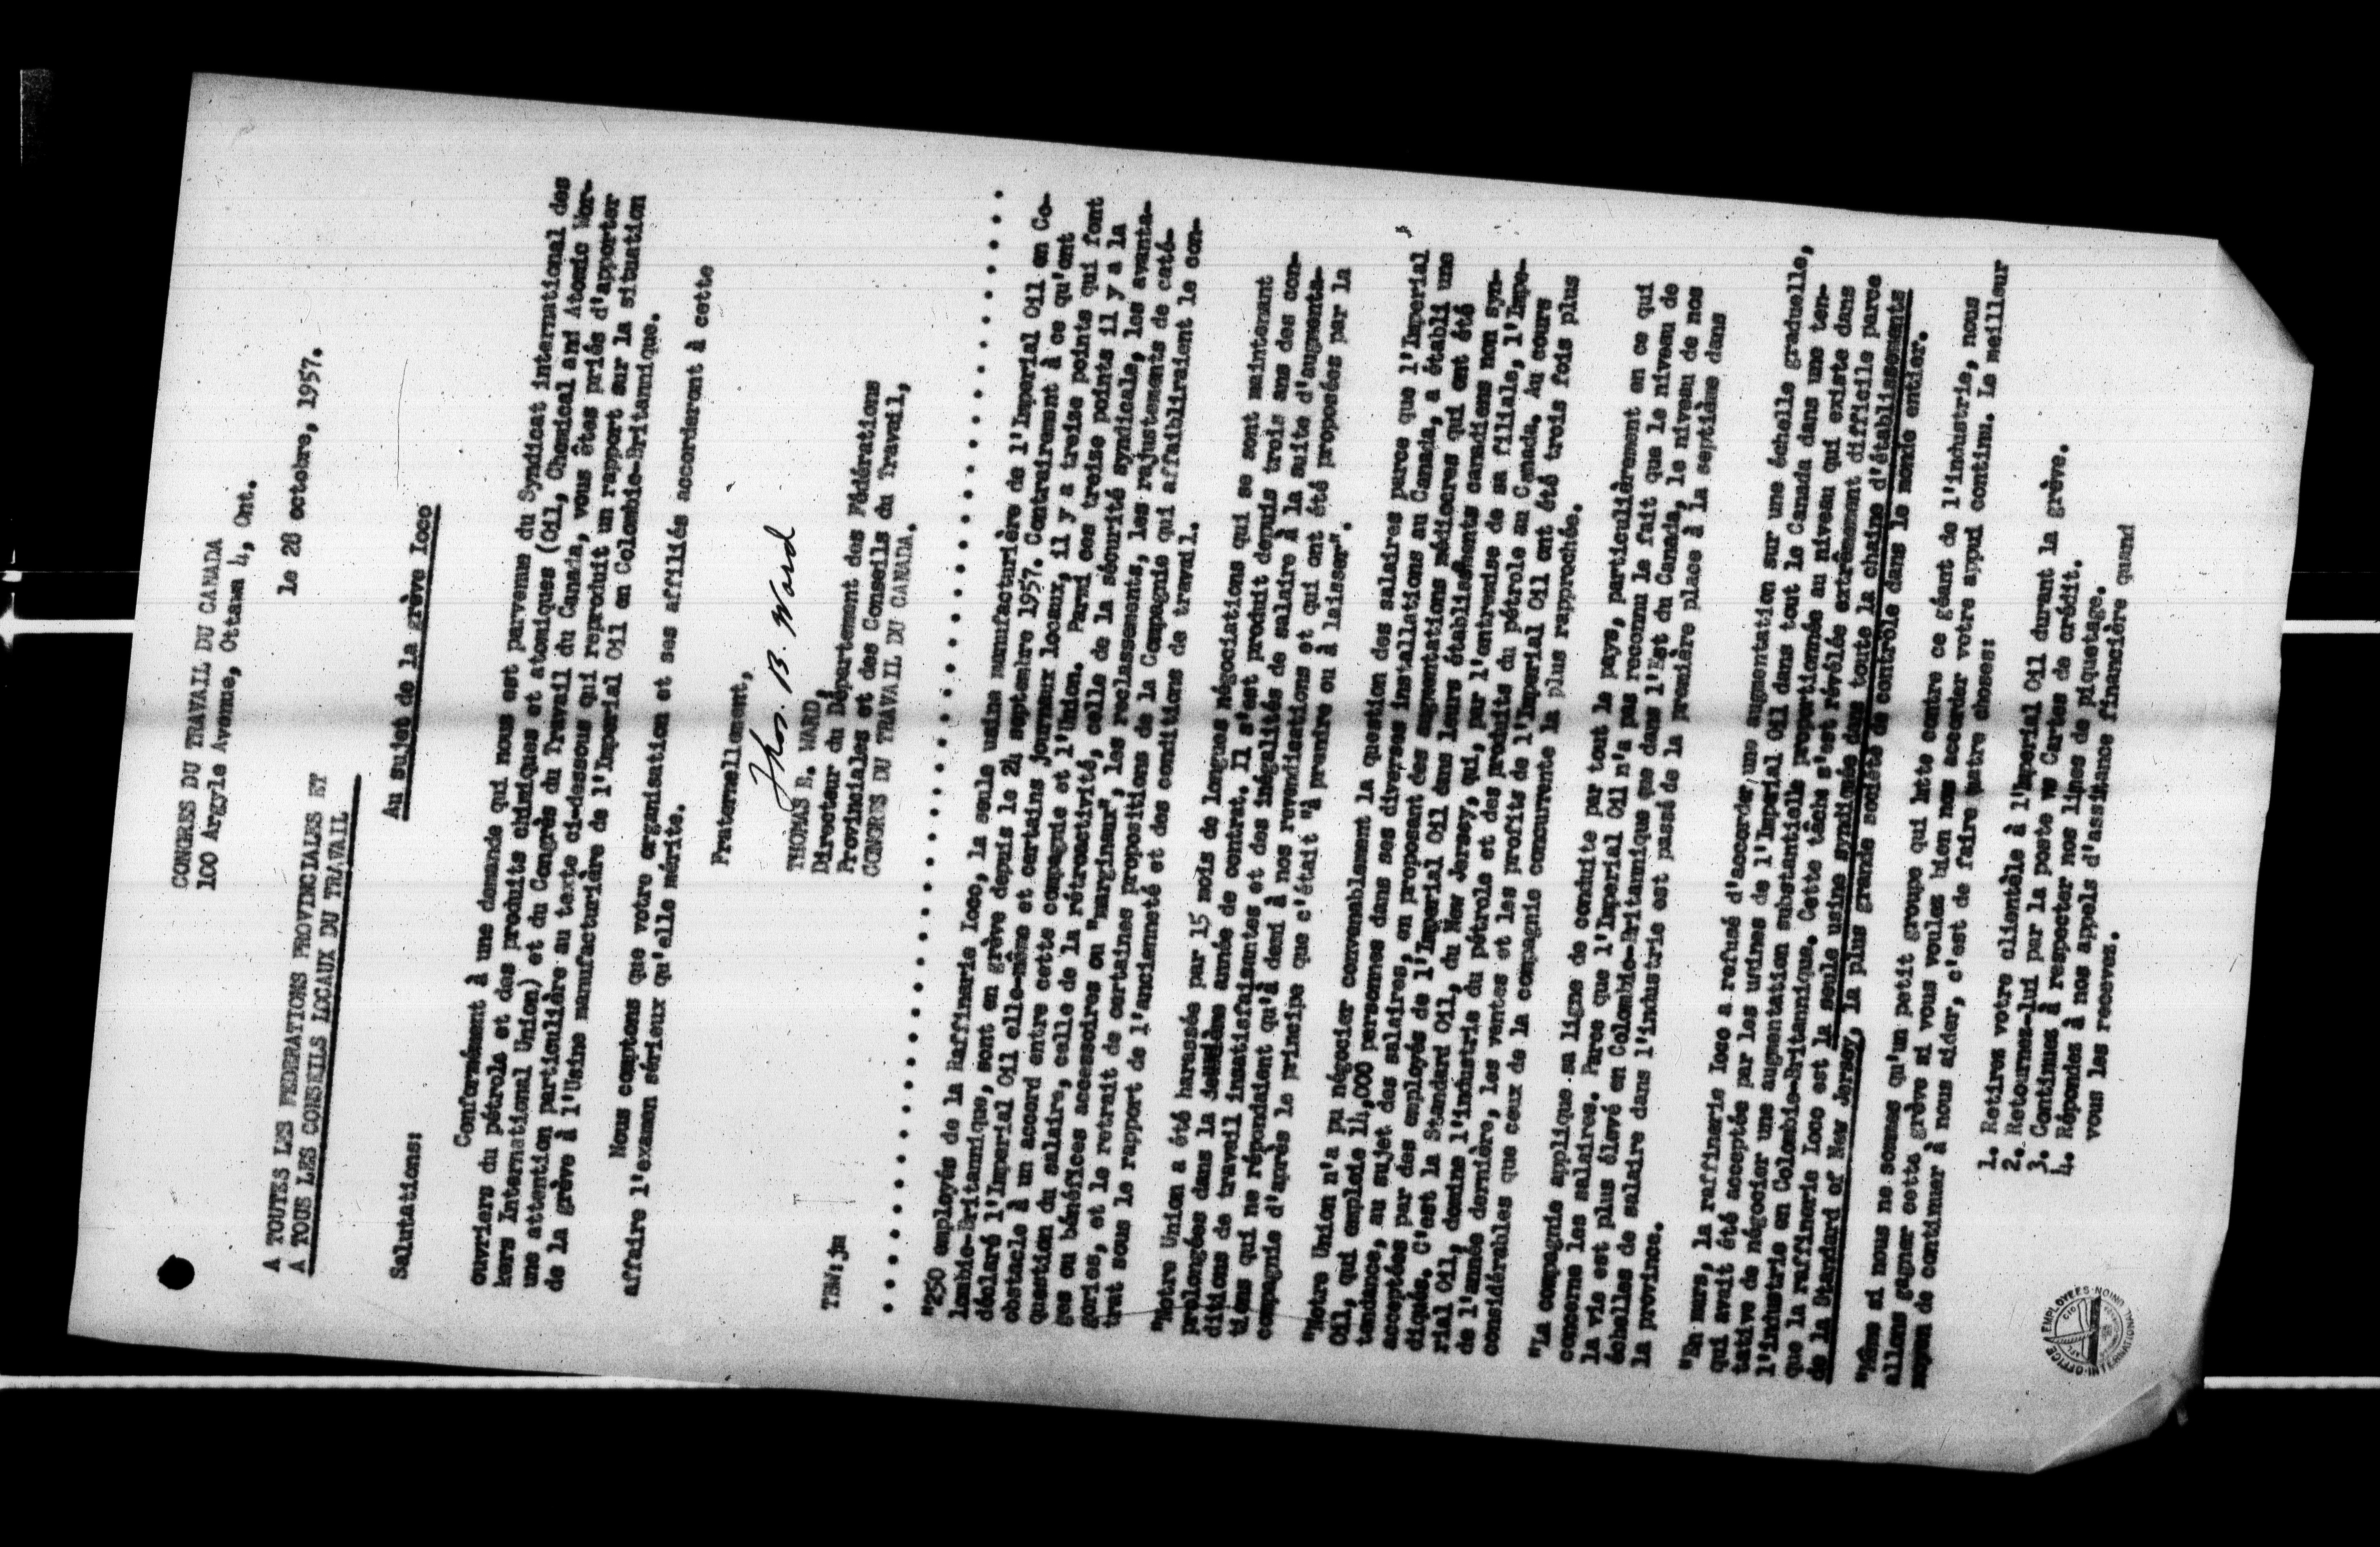 CONGRES DU TRAVAIL DU CANADA
100 Argyle Avenue, Ottawa 4, Ont.
le 28 octobre, 1957.
A TOUTES LES FEDERATIONS PROVINCIALES ET
A TOUS LES CONSEILS LOCAUX DU TRAVAIL
Au sujet de la grève Ioco
Salutations:
Conformément à une demande qui nous est parvenue du Syndicat international des
ouvriers du pétrole et des produits chimiques et atomiques (Oil, Chemical and Atomic Wor-
kers International Union) et du Congrès du Travail du Canada, vous êtes priés d'apporter
une attention particulière au texte ci-dessous qui reproduit un rapport sur la situation
de la grève à l'Usine manufacturière de l'Imperial Oil en Colombie-Britannique.
Nous comptons que votre organisation et ses affiliés accorderont à cette
affaire l'examen sérieux qu'elle mérite.
Fraternellement,
Thos. B. Ward
THOMAS B. WARD,
Directeur du Département des Fédérations
Provinciales et des Conseils du Travail,
CONGRES DU TRAVAIL DU CANADA.
TBW:jm
"250 employés de la Raffinerie Ioco, la seule usine manufacturière de l'Imperial Oil en Co-
lombie-Britannique, sont en grève depuis le 24 septembre 1957. Contrairement à ce qu'ont
déclaré l'Imperial Oil elle-même et certains journaux locaux, il y a treize points qui font
obstacle à un accord entre cette compagnie et l'Union. Parmi ces treize points il y a la
question du salaire, celle de la rétroactivité, celle de la sécurité syndicale, les avanta-
ges ou bénéfices accessoires ou "marginaux", les reclassements, les rajustements de caté-
gories, et le retrait de certaines propositions de la Compagnie qui affaibliraient le con-
trat sous le rapport de l'ancienneté et des conditions de travail.
"Notre Union a été harassée par 15 mois de longues négociations qui se sont maintenant
prolongées dans la deuxième année de contrat. Il s'est produit depuis trois ans des con-
ditions de travail insatisfaisantes et des inégalités de salaire à la suite d'augmenta-
tions qui ne répondaient qu'à demi à nos revendications et qui ont été proposées par la
compagnie d'après le principe que c'était "à prendre ou à laisser".
"Notre Union n'a pu négocier convenablement la question des salaires parce que l'Imperial
Oil, qui emploie 14,000 personnes dans ses diverses installations au Canada, a établi une
tendance, au sujet des salaires, en proposant des augmentations médiocres qui ont été
acceptées par des employés de l'Imperial Oil dans leurs établissements canadiens non syn-
diqués. C'est la Standard Oil, du New Jersey, qui, par l'entremise de sa filiale, l'Impe-
rial Oil, domine l'industrie du pétrole et des produits du pétrole au Canada. Au cours
de l'année dernière, les ventes et les profits de l'Imperial Oil ont été trois fois plus
considérables que ceux de la compagnie concurrente la plus rapprochée.
"La compagnie applique sa ligne de conduite par tout le pays, particulièrement en ce qui
concerne les salaires. Parce que l'Imperial Oil n'a pas reconnu le fait que le niveau de
la vie est plus élevé en Colombie-Britannique que dans l'Est du Canada, le niveau de nos
échelles de salaire dans l'industrie est passé de la première place à la septième dans
la province.
"En mars, la raffinerie Ioco a refusé d'accorder une augmentation sur une échelle graduelle,
qui avait été acceptée par les usines de l'Imperial Oil dans tout le Canada dans une ten-
tative de négocier une augmentation substantielle proportionnée au niveau qui existe dans
l'industrie en Colombie-Britannique. Cette tâche s'est révélée extrêmement difficile parce
que la raffinerie Ioco est la seule usine syndiquée dans toute la chaîne d'établissements
de la Standard of New Jersey, la plus grande société de contrôle dans le monde entier.
"Même si nous ne sommes qu'un petit groupe qui lutte contre ce géant de l'industrie, nous
allons gagner cette grève si vous voulez bien nous accorder votre appui continu. Le meilleur
moyen de continuer à nous aider, c'est de faire quatre choses:
1. Retirez votre clientèle à l'Imperial Oil durant la grève.
2. Retournez-lui par la poste vo Cartes de crédit.
3. Continuez à respecter nos lignes de piquetage.
4. Répondez à nos appels d'assistance financière quand
vous les recevez.
OFFICE EMPLOYEES
INTERNATIONAL UNION